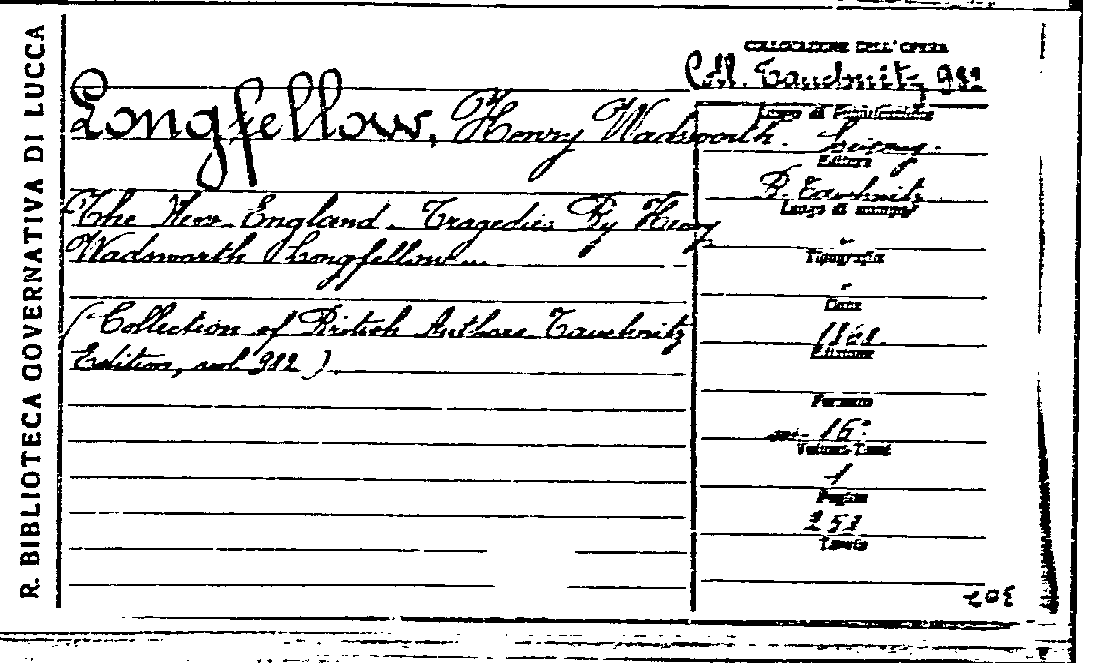 R. BIBLIOTECA GOVERNATIVA DI LUCCA
COLLOCAZIONE DELL'OPERA
Coll. Tauchnitz 982
Longfellow, Henry Wadsworth.
The New England Tragedies By Henry
Wadsworth Longfellow
(Collection of British Authors Tauchnitz
Edition, vol. 982)
Luogo di Pubblicazione
Leipzig.
Editore
B. Tauchnitz
Luogo di stampa
"
Tipografia
"
Data
Edizione
Formato
in- 16°
Volumi-Tomi
1
Pagine
Tavole